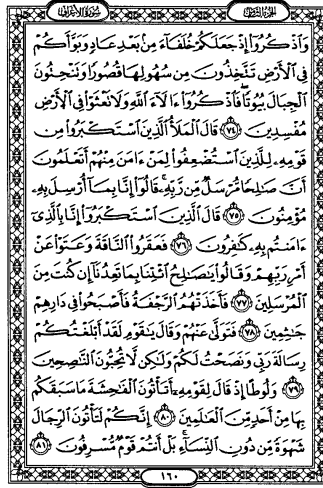 سورة الأعراف الجزء الثامن
وَٱذۡكُرُوٓاْ إِذۡ جَعَلَكُمۡ خُلَفَآءَ مِنۢ بَعۡدِ عَادٖ وَبَوَّأَكُمۡ
فِي ٱلۡأَرۡضِ تَتَّخِذُونَ مِن سُهُولِهَا قُصُورٗا وَتَنۡحِتُونَ
ٱلۡجِبَالَ بُيُوتٗاۖ فَٱذۡكُرُوٓاْ ءَالَآءَ ٱللَّهِ وَلَا تَعۡثَوۡاْ فِي ٱلۡأَرۡضِ
مُفۡسِدِينَ ٧٤ قَالَ ٱلۡمَلَأُ ٱلَّذِينَ ٱسۡتَكۡبَرُواْ مِن
قَوۡمِهِۦ لِلَّذِينَ ٱسۡتُضۡعِفُواْ لِمَنۡ ءَامَنَ مِنۡهُمۡ أَتَعۡلَمُونَ
أَنَّ صَٰلِحٗا مُّرۡسَلٞ مِّن رَّبِّهِۦۚ قَالُوٓاْ إِنَّا بِمَآ أُرۡسِلَ بِهِۦ
مُؤۡمِنُونَ ٧٥ قَالَ ٱلَّذِينَ ٱسۡتَكۡبَرُوٓاْ إِنَّا بِٱلَّذِيٓ
ءَامَنتُم بِهِۦ كَٰفِرُونَ ٧٦ فَعَقَرُواْ ٱلنَّاقَةَ وَعَتَوۡاْ عَنۡ
أَمۡرِ رَبِّهِمۡ وَقَالُواْ يَٰصَٰلِحُ ٱئۡتِنَا بِمَا تَعِدُنَآ إِن كُنتَ مِنَ
ٱلۡمُرۡسَلِينَ ٧٧ فَأَخَذَتۡهُمُ ٱلرَّجۡفَةُ فَأَصۡبَحُواْ فِي دَارِهِمۡ
جَٰثِمِينَ ٧٨ فَتَوَلَّىٰ عَنۡهُمۡ وَقَالَ يَٰقَوۡمِ لَقَدۡ أَبۡلَغۡتُكُمۡ
رِسَالَةَ رَبِّي وَنَصَحۡتُ لَكُمۡ وَلَٰكِن لَّا تُحِبُّونَ ٱلنَّٰصِحِينَ
٧٩ وَلُوطًا إِذۡ قَالَ لِقَوۡمِهِۦٓ أَتَأۡتُونَ ٱلۡفَٰحِشَةَ مَا سَبَقَكُم
بِهَا مِنۡ أَحَدٖ مِّنَ ٱلۡعَٰلَمِينَ ٨٠ إِنَّكُمۡ لَتَأۡتُونَ ٱلرِّجَالَ
شَهۡوَةٗ مِّن دُونِ ٱلنِّسَآءِۚ بَلۡ أَنتُمۡ قَوۡمٞ مُّسۡرِفُونَ ٨١
١٦٠